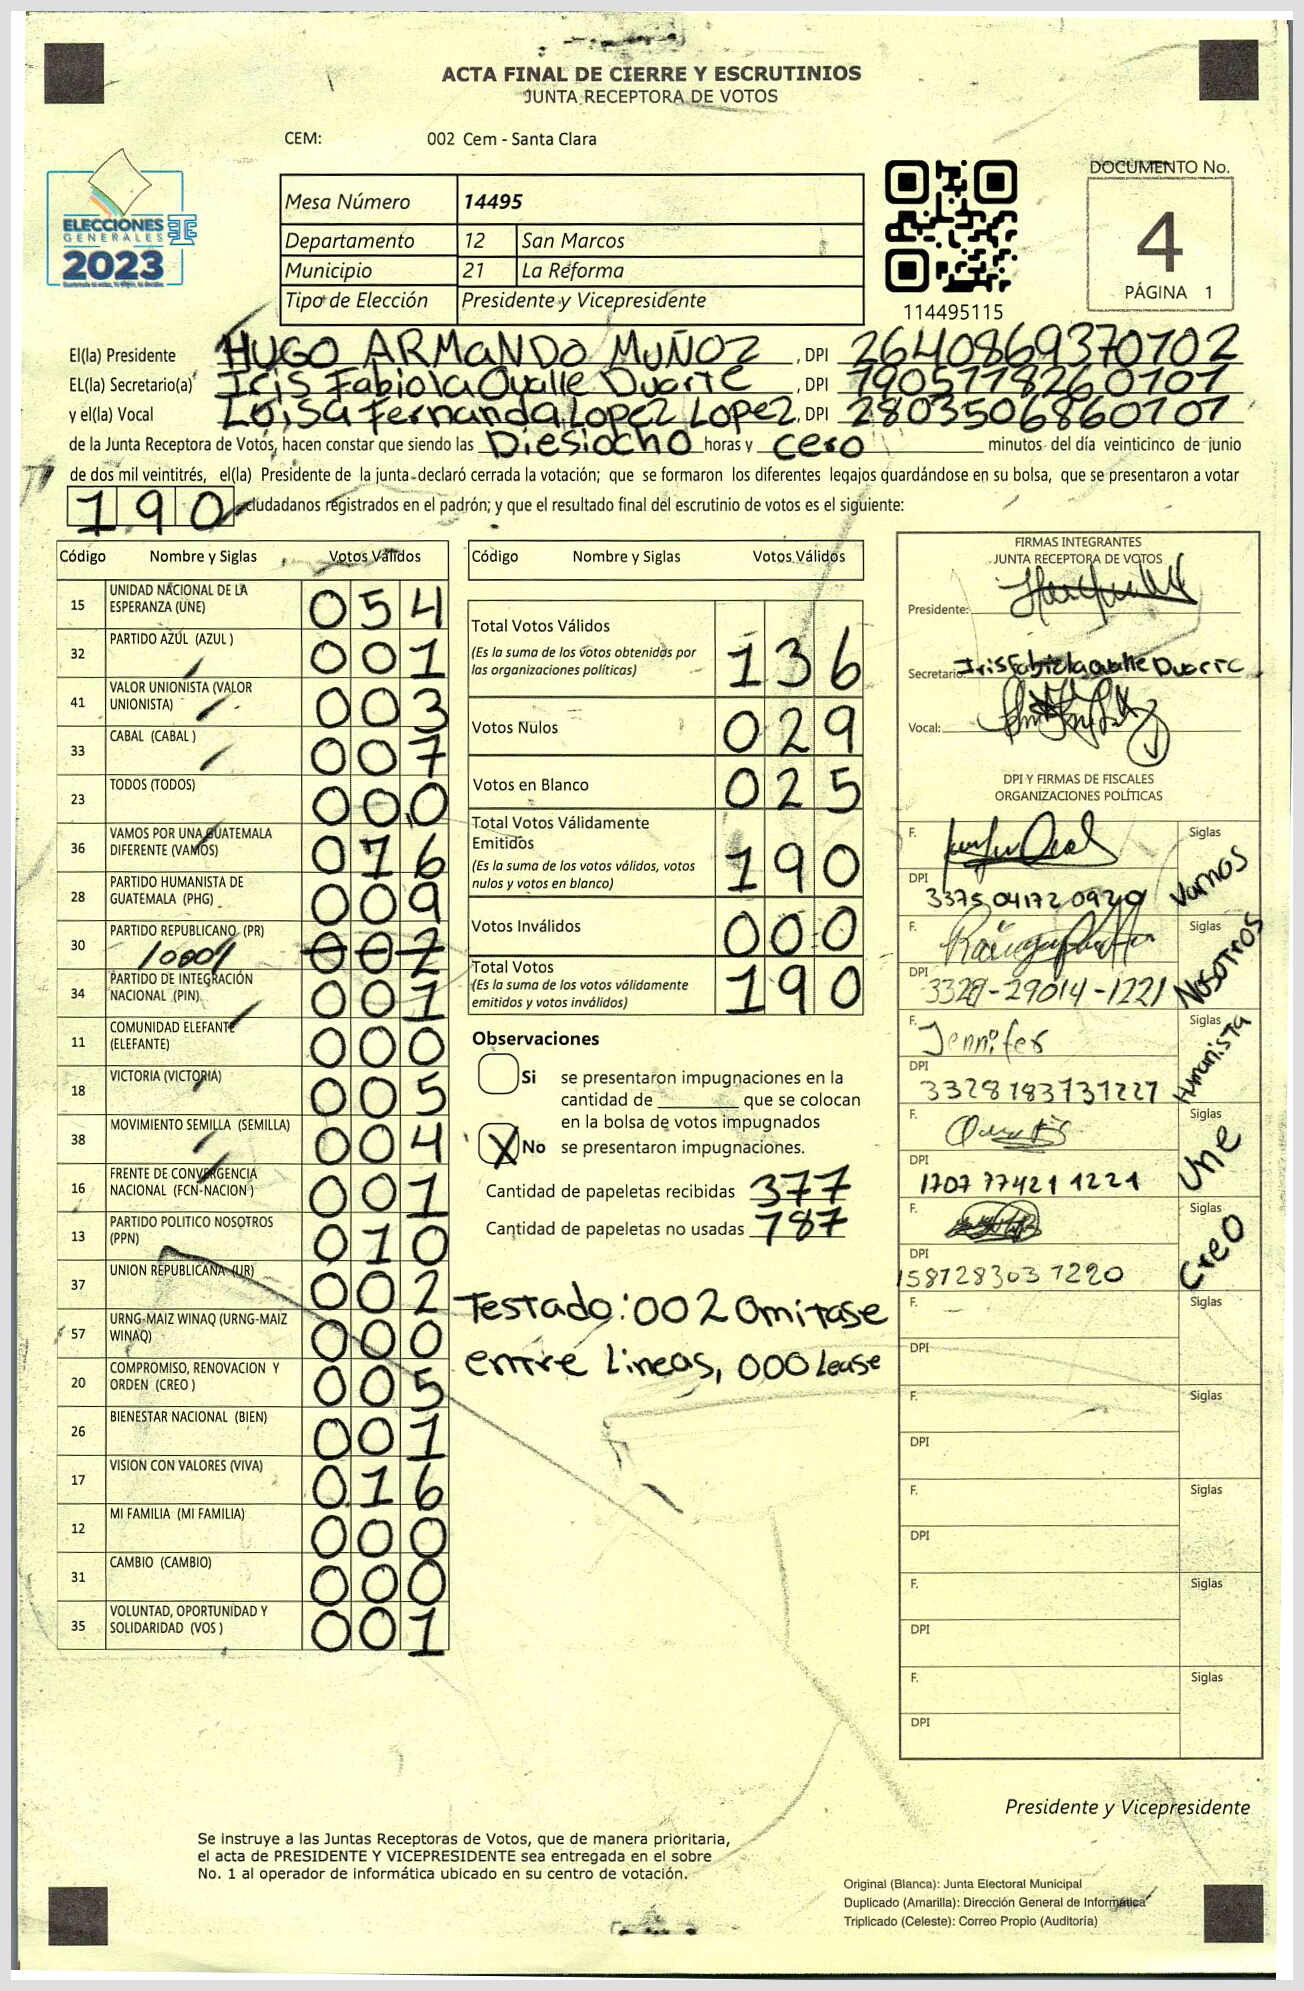 ACTA FINAL DE CIERRE Y ESCRUTINIOS
JUNTA RECEPTORA DE VOTOS
CEM: 002 Cem - Santa Clara
ELECCIONES
GENERALES
2023
Mesa Número 14495
Departamento 12 San Marcos
Municipio 21 La Reforma
Tipo de Elección Presidente y Vicepresidente
114495115
DOCUMENTO No.
4
PÁGINA 1
El(la) Presidente HUGO ARMANDO MUÑOZ, DPI 2640869370702
EL(la) Secretario(a) Iris Fabiola Ovalle Duarte, DPI 1905778260101
y el(la) Vocal Loisa Fernanda Lopez Lopez, DPI 2803506860101
de la Junta Receptora de Votos, hacen constar que siendo las Diesiocho horas y cero minutos del día veinticinco de junio
de dos mil veintitrés, el(la) Presidente de la junta declaró cerrada la votación; que se formaron los diferentes legajos guardándose en su bolsa, que se presentaron a votar
190 ciudadanos registrados en el padrón; y que el resultado final del escrutinio de votos es el siguiente:
Código Nombre y Siglas Votos Válidos
15 UNIDAD NACIONAL DE LA ESPERANZA (UNE) 054
32 PARTIDO AZUL (AZUL ) 001
41 VALOR UNIONISTA (VALOR UNIONISTA) 003
33 CABAL (CABAL ) 007
23 TODOS (TODOS) 000
36 VAMOS POR UNA GUATEMALA DIFERENTE (VAMOS) 016
28 PARTIDO HUMANISTA DE GUATEMALA (PHG) 009
30 PARTIDO REPUBLICANO (PR) /000/ 002
34 PARTIDO DE INTEGRACIÓN NACIONAL (PIN) 001
11 COMUNIDAD ELEFANTE (ELEFANTE) 000
18 VICTORIA (VICTORIA) 005
38 MOVIMIENTO SEMILLA (SEMILLA) 004
16 FRENTE DE CONVERGENCIA NACIONAL (FCN-NACION ) 001
13 PARTIDO POLITICO NOSOTROS (PPN) 010
37 UNION REPUBLICANA (UR) 002
57 URNG-MAIZ WINAQ (URNG-MAIZ WINAQ) 000
20 COMPROMISO, RENOVACION Y ORDEN (CREO ) 005
26 BIENESTAR NACIONAL (BIEN) 001
17 VISION CON VALORES (VIVA) 016
12 MI FAMILIA (MI FAMILIA) 000
31 CAMBIO (CAMBIO) 000
35 VOLUNTAD, OPORTUNIDAD Y SOLIDARIDAD (VOS ) 001
Código Nombre y Siglas Votos Válidos
Total Votos Válidos 136
(Es la suma de los votos obtenidos por
las organizaciones políticas)
Votos Nulos 029
Votos en Blanco 025
Total Votos Válidamente
Emitidos 190
(Es la suma de los votos válidos, votos
nulos y votos en blanco)
Votos Inválidos 000
Total Votos 190
(Es la suma de los votos válidamente
emitidos y votos inválidos)
Observaciones
Si se presentaron impugnaciones en la
cantidad de ________ que se colocan
en la bolsa de votos impugnados
X No se presentaron impugnaciones.
Cantidad de papeletas recibidas 377
Cantidad de papeletas no usadas 187
Testado: 002 Omitase
entre lineas, 000 Lease
FIRMAS INTEGRANTES
JUNTA RECEPTORA DE VOTOS
Presidente:
Secretario: Iris Fabiola Ovalle Duarte
Vocal:
DPI Y FIRMAS DE FISCALES
ORGANIZACIONES POLÍTICAS
F. Siglas Vamos
DPI 3375 04172 0920
F. Siglas Nosotros
DPI 3328-29014-1221
F. Jennifer Siglas Humanista
DPI 3328183731227
F. Siglas Une
DPI 1707 77421 1221
F. Siglas Creo
DPI 158728303 1220
F. Siglas
DPI
F. Siglas
DPI
F. Siglas
DPI
F. Siglas
DPI
F. Siglas
DPI
Presidente y Vicepresidente
Se instruye a las Juntas Receptoras de Votos, que de manera prioritaria,
el acta de PRESIDENTE Y VICEPRESIDENTE sea entregada en el sobre
No. 1 al operador de informática ubicado en su centro de votación.
Original (Blanca): Junta Electoral Municipal
Duplicado (Amarilla): Dirección General de Informática
Triplicado (Celeste): Correo Propio (Auditoría)